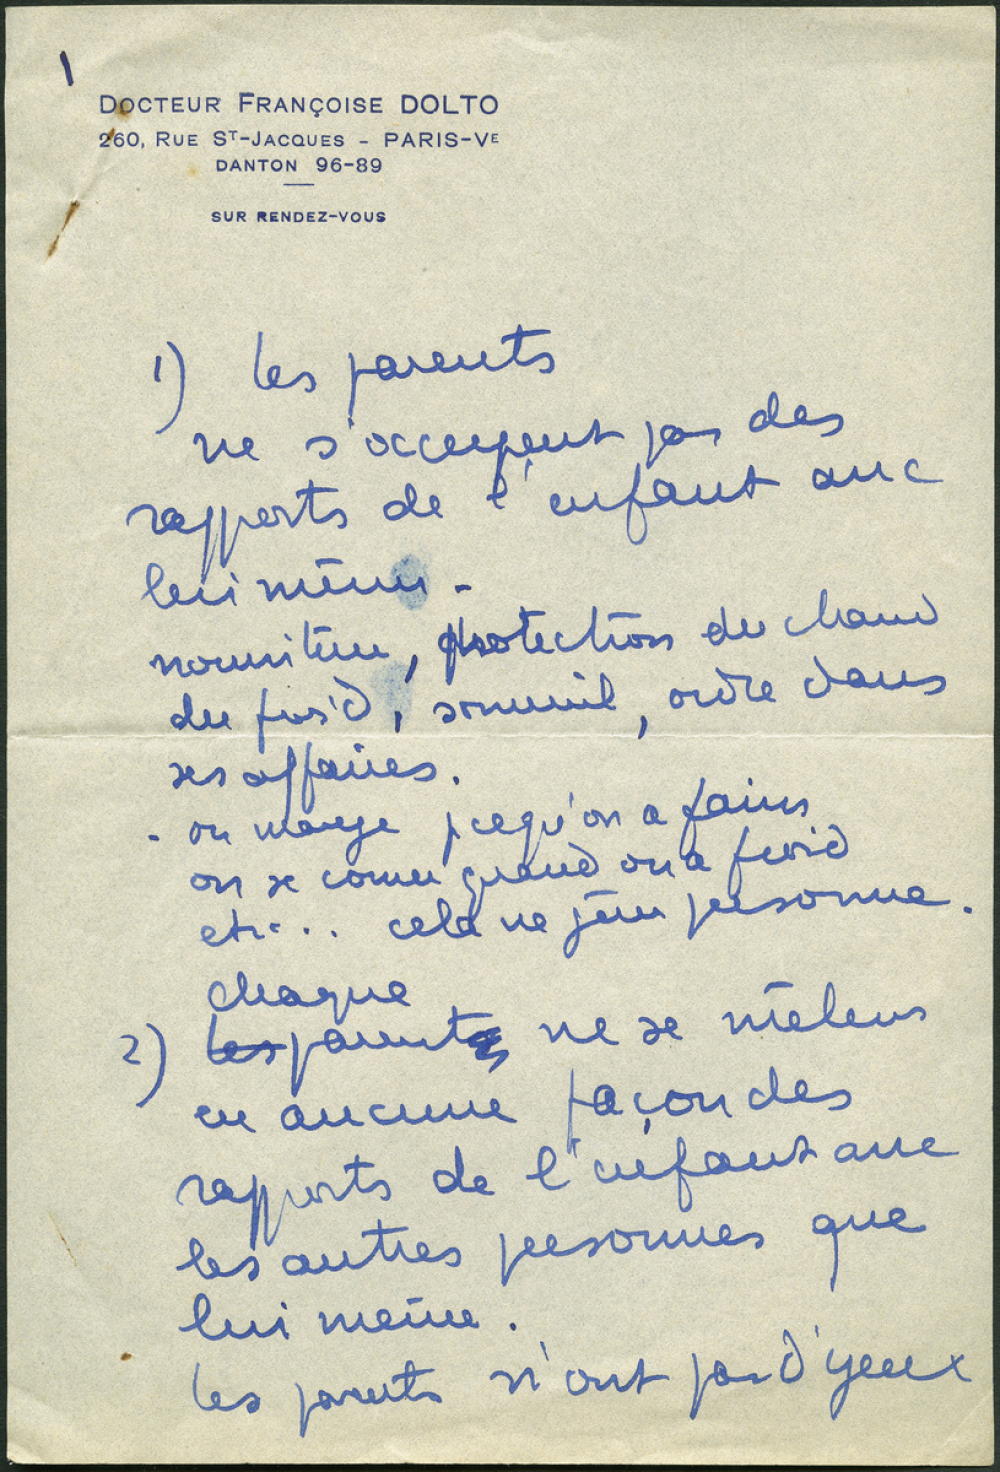 1
DOCTEUR FRANÇOISE DOLTO
260, RUE ST-JACQUES - PARIS-VE
DANTON 96-89
SUR RENDEZ-VOUS
1) les parents
ne s'occupent pas des
rapports de l'enfant avec
lui même -
nourriture, protection du chaud
du froid, sommeil, ordre dans
ses affaires.
- on mange pcequ'on a faim
on se couvre quand on a froid
etc... cela ne gêne personne.
chaque
2) les parents ne se mêlent
en aucune façon des
rapports de l'enfant avec
les autres personnes que
lui même.
les parents n'ont pas d'yeux